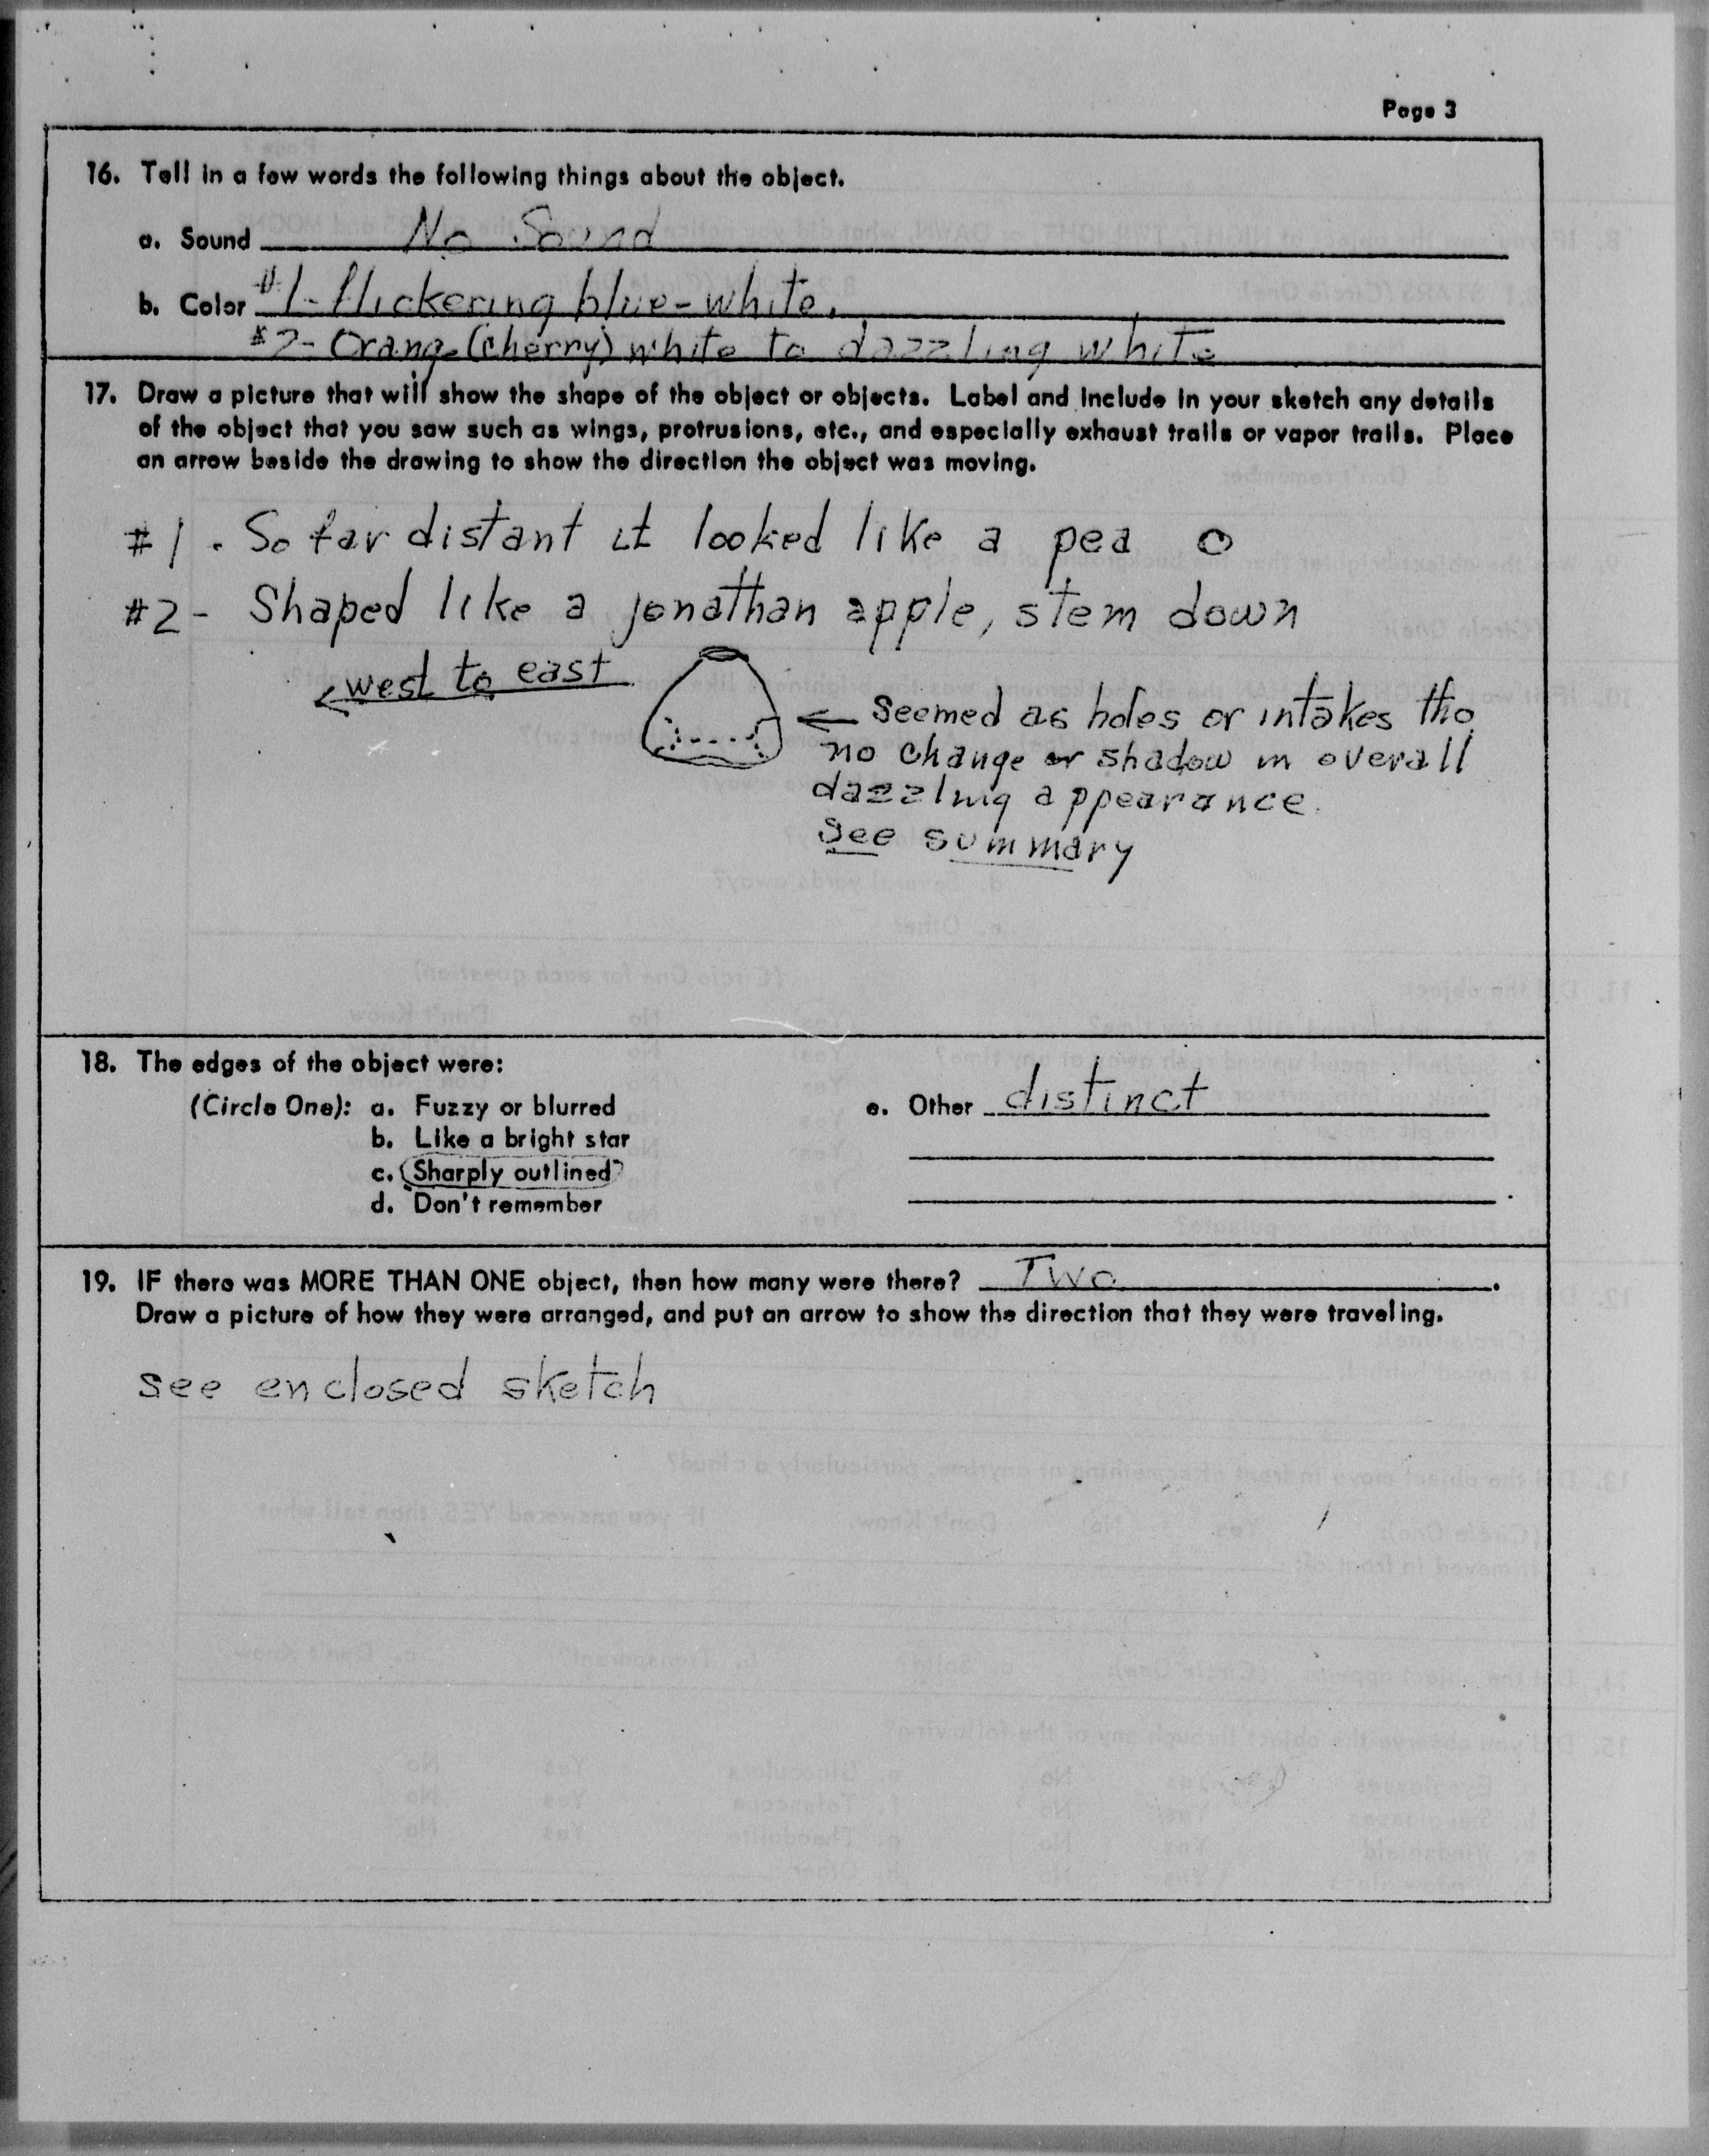 Page 3
16. Tell in a few words the following things about the object.
a. Sound No Sound
b. Color #1- flickering blue-white.
#2- Orange (cherry) white to dazzling white
17. Draw a picture that will show the shape of the object or objects. Label and include in your sketch any details
of the object that you saw such as wings, protrusions, etc., and especially exhaust trails or vapor trails. Place
an arrow beside the drawing to show the direction the object was moving.
#1. So far distant it looked like a pea
#2- Shaped like a jonathan apple, stem down
west to east
Seemed as holes or intakes tho
no change or shadow in overall
dazzling appearance.
See summary
18. The edges of the object were:
(Circle One): a. Fuzzy or blurred
b. Like a bright star
c. Sharply outlined
d. Don't remember
e. Other distinct
19. IF there was MORE THAN ONE object, then how many were there? Two.
Draw a picture of how they were arranged, and put an arrow to show the direction that they were traveling.
see enclosed sketch